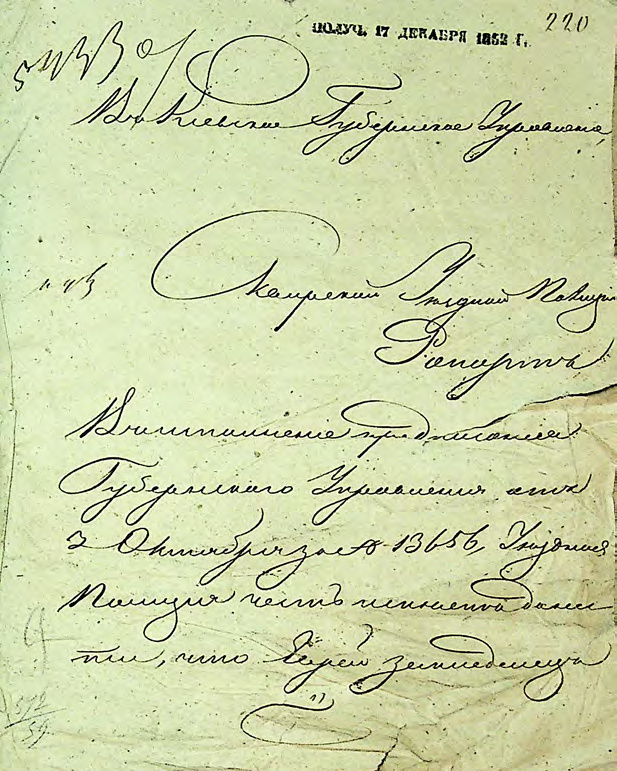 220
ПОЛУЧ. 17 ДЕКАБРЯ 1852 Г.
Въ Киевское Губернское Управление,
Сквирской Уездной Полиции
Рапортъ
Во исполнение предписания
Губернского Управления отъ
2 Октября за № 13656, Уездная
Полиция честь имеетъ донес
ти, что Евреи земледельцы